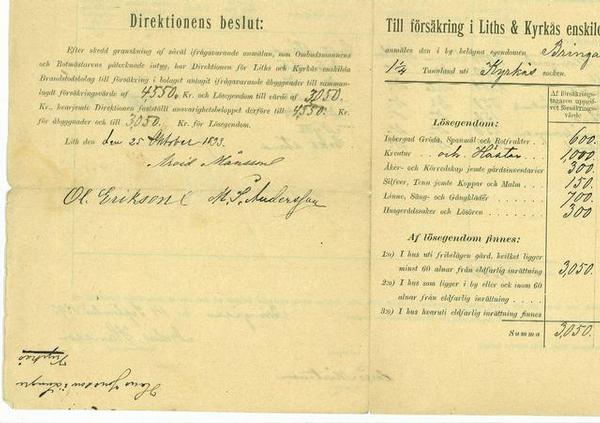 Direktionens beslut:
Efter skedd granskning af såväl ifrågavarande anmälan, som Ombudsmannens
och Rotmästarens påtecknade intyg, har Direktionen för Liths och Kyrkås enskilda
Brandstodsbolag till försäkring i bolaget antagit ifrågavarande åbyggender till samman-
lagdt försäkringsvärde af 4550. Kr. och Lösegendom till värde af 3050.
Kr., hvarjemte Direktionen fastställt ansvarighetsbeloppet derföre till 4550. Kr.
för åbyggnader och till 3050. Kr. för Lösegendom.
Lith den 25 Oktober 1893.
Månsson
Ol. Erikson M. P. Andersson
Kyrkås
Till försäkring i Liths & Kyrkås enskil
anmäles den i by belägna egendomen Bringå
1 1/4 Tunnland uti Kyrkås socken.
Af försäkrings-
tagaren uppgif-
vet försäkrings-
värde
Lösegendom:
Inbergad Gröda, Spanmål och Rotfrukter 600.
Kreatur och Hästar 1,000
Åker- och Körredskap jemte gårdsinventarier 300
Silfver, Tenn jemte Koppar och Malm 150.
Linne, Säng- och Gångkläder 700.
Husgerådssaker och Lösören 300
Af lösegendom finnes:
1:o) I hus uti fribelägen gård, hvilket ligger
minst 60 alnar från eldfarlig inrättning 3,050.
2:o) I hus som ligger i by eller ock inom 60
alnar från eldfarlig inrättning
3:o) I hus hvaruti eldfarlig inrättning finnes
Summa 3,050.